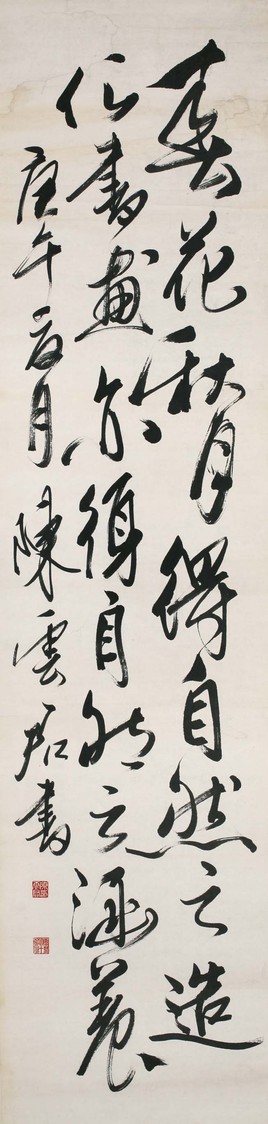 春花秋月得自然之造
化書畫亦得自然之涵養
庚午夏月陳雲君書